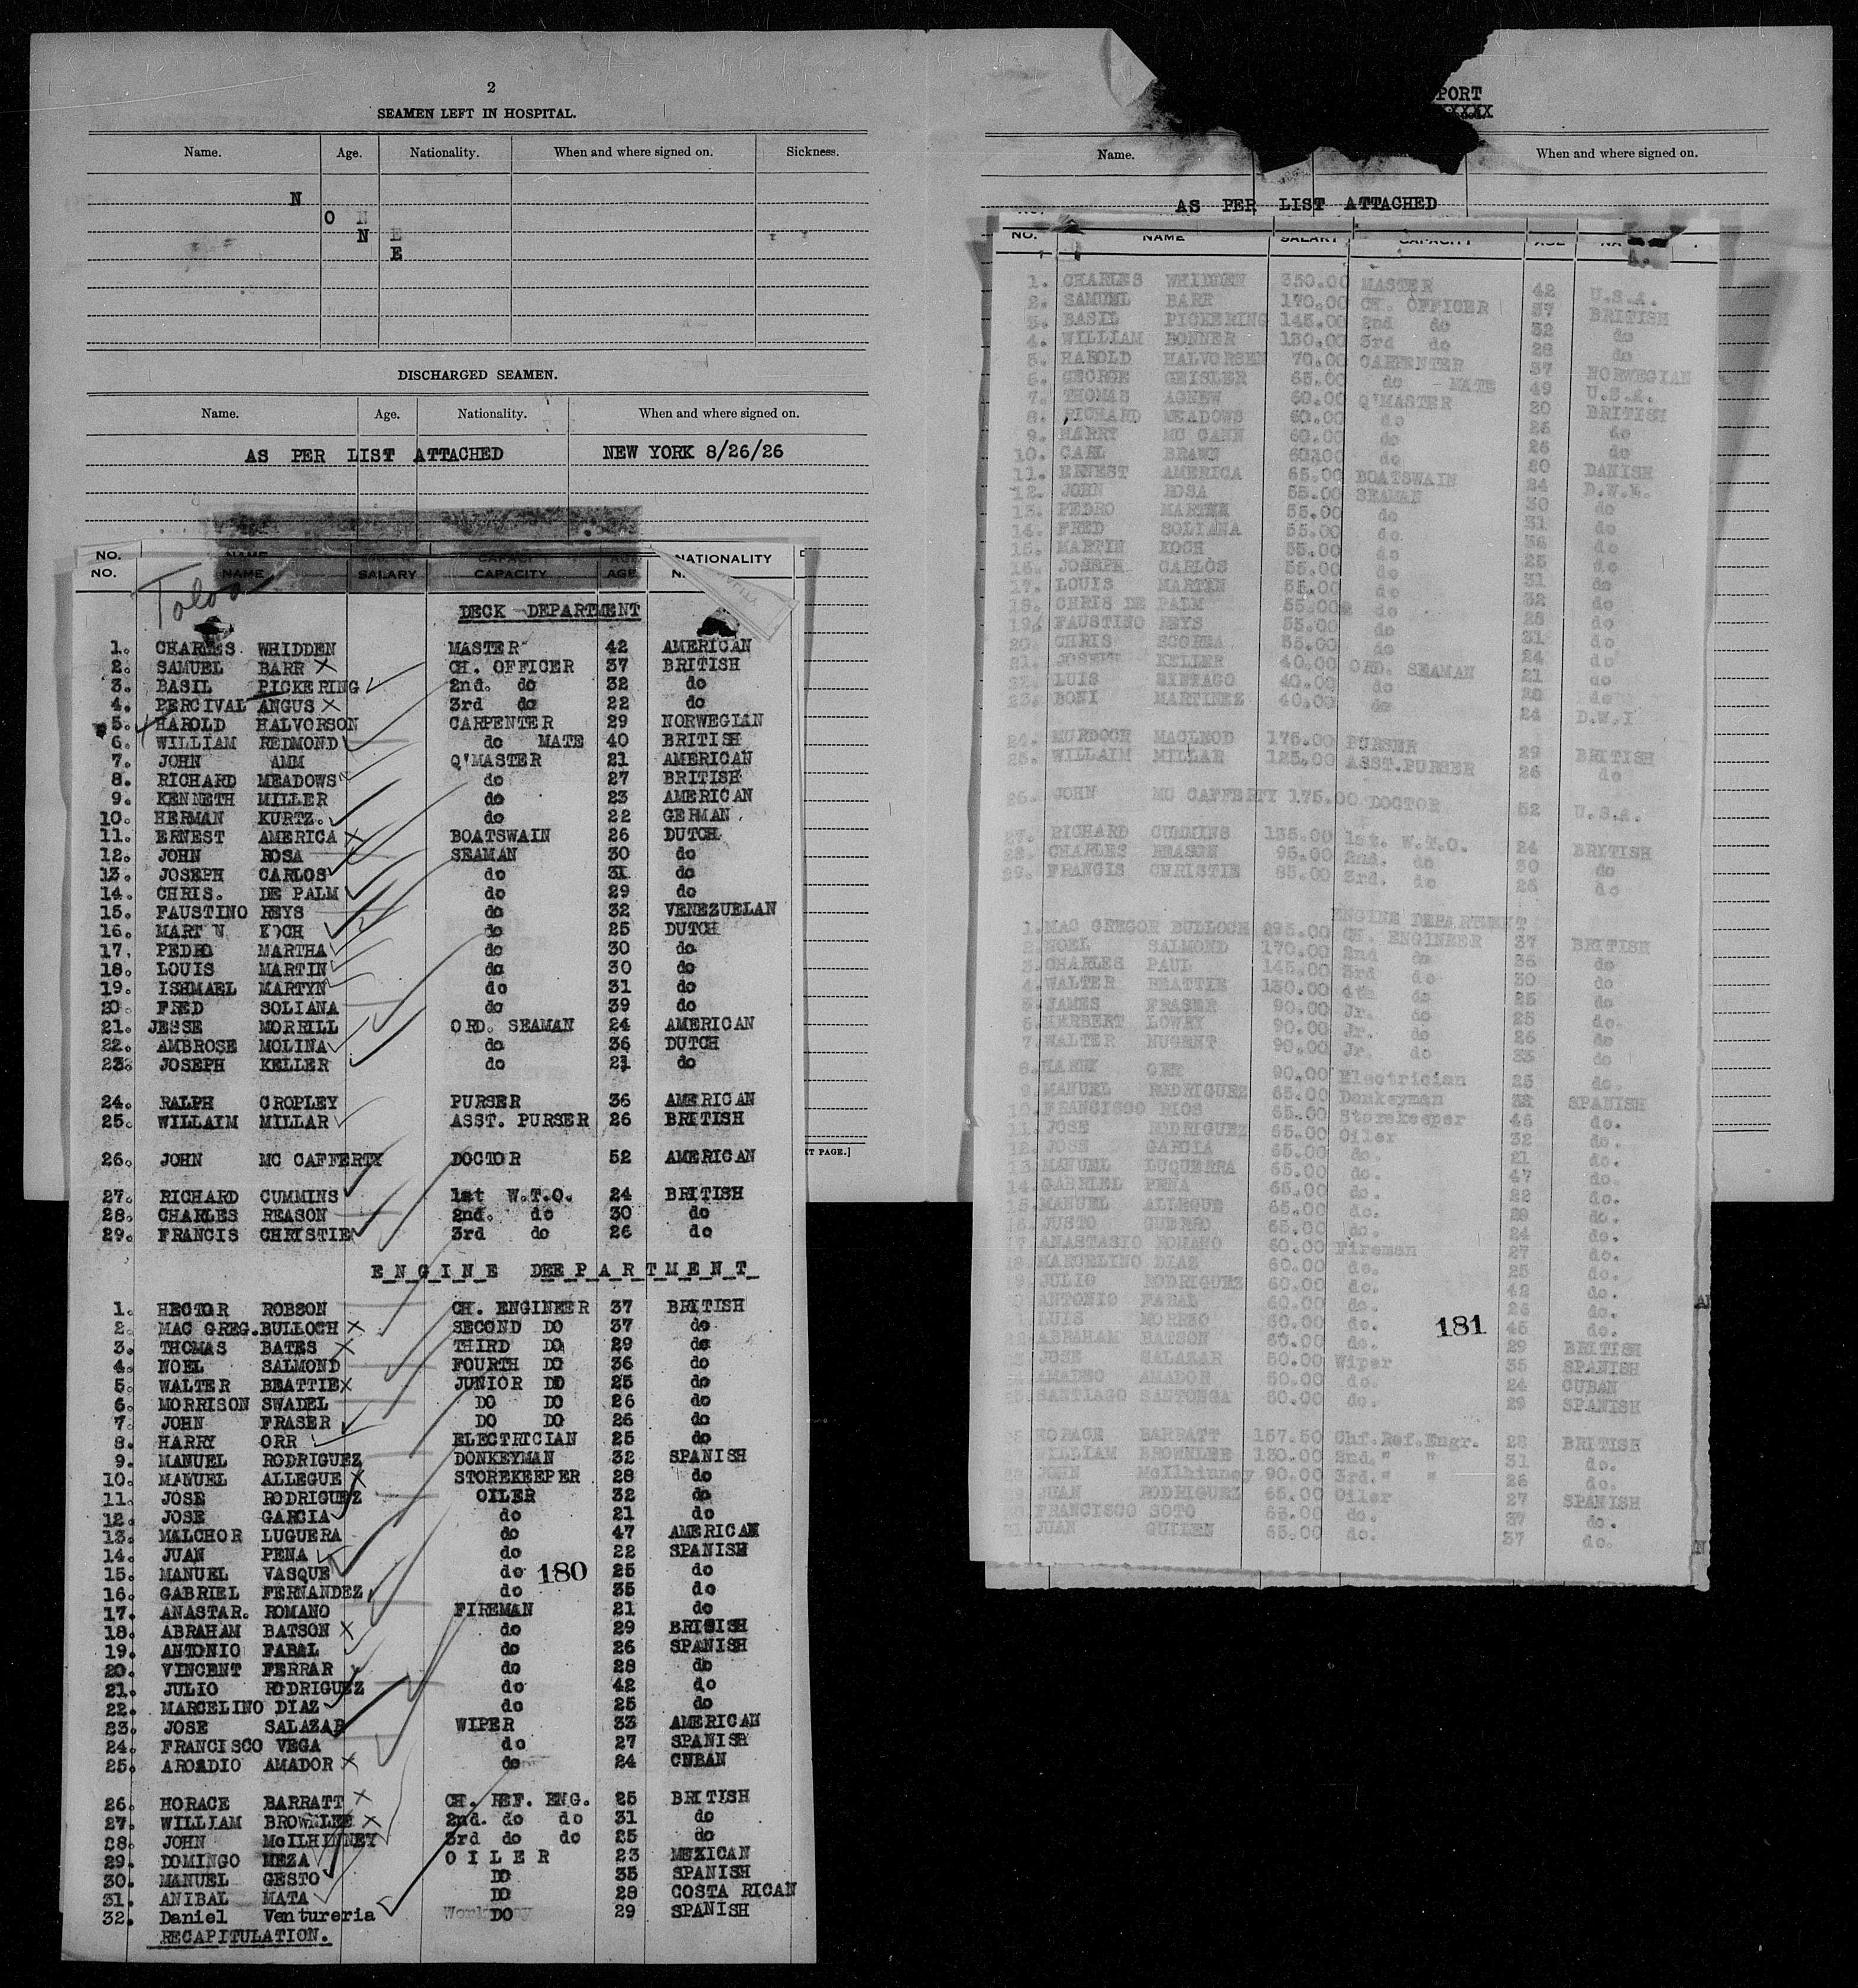 2
SEAMEN LEFT IN HOSPITAL.
Name. Age. Nationality. When and where signed on. Sickness.
N
O N
N E
E
DISCHARGED SEAMEN.
Name. Age. Nationality. When and where signed on.
AS PER LIST ATTACHED NEW YORK 8/26/26
NO. NAME CAPACITY AGE NATIONALITY
NO. NAME SALARY CAPACITY AGE
Toloa
DECK DEPARTMENT
1. CHARLES WHIDDEN MASTER 42 AMERICAN
2. SAMUEL BARR X CH. OFFICER 37 BRITISH
3. BASIL PICKERING 2nd. do 32 do
4. PERCIVAL ANGUS X 3rd do 22 do
5. HAROLD HALVORSON CARPENTER 29 NORWEGIAN
6. WILLIAM REDMOND do MATE 40 BRITISH
7. JOHN AMM Q'MASTER 21 AMERICAN
8. RICHARD MEADOWS do 27 BRITISH
9. KENNETH MILLER do 23 AMERICAN
10. HERMAN KURTZ. do 22 GERMAN
11. ERNEST AMERICA X BOATSWAIN 26 DUTCH
12. JOHN ROSA SEAMAN 30 do
13. JOSEPH CARLOS do 31 do
14. CHRIS. DE PALM do 29 do
15. FAUSTINO REYS do 32 VENEZUELAN
16. MART N KOCH do 25 DUTCH
17. PEDRO MARTHA do 30 do
18. LOUIS MARTIN do 30 do
19. ISHMAEL MARTYN do 31 do
20. FRED SOLIANA do 39 do
21. JESSE MORRILL ORD. SEAMAN 24 AMERICAN
22. AMBROSE MOLINA do 36 DUTCH
23. JOSEPH KELLER do 21 do
24. RALPH CROPLEY PURSER 36 AMERICAN
25. WILLAIM MILLAR ASST. PURSER 26 BRITISH
26. JOHN MC CAFFERTY DOCTOR 52 AMERICAN
27. RICHARD CUMMINS 1st W.T.O. 24 BRITISH
28. CHARLES REASON 2nd. do 30 do
29. FRANCIS CHRISTIE 3rd do 26 do
ENGINE DEEPARTMENT
1. HECTOR ROBSON CH. ENGINEER 37 BRITISH
2. MAC GREG.BULLOCH X SECOND DO 37 do
3. THOMAS BATES X THIRD DO 29 do
4. NOEL SALMOND FOURTH DO 36 do
5. WALTER BEATTIE X JUNIOR DO 25 do
6. MORRISON SWADEL DO DO 26 do
7. JOHN FRASER DO DO 26 do
8. HARRY ORR ELECTRICIAN 25 do
9. MANUEL RODRIGUEZ DONKEYMAN 32 SPANISH
10. MANUEL ALLEGUE X STOREKEEPER 28 do
11. JOSE RODRIGUEZ OILER 32 do
12. JOSE GARCIA do 21 do
13. MALCHOR LUGUERA do 47 AMERICAN
14. JUAN PENA do 22 SPANISH
15. MANUEL VASQUE do 25 do
180
16. GABRIEL FERNANDEZ do 35 do
17. ANASTAR. ROMANO FIREMAN 21 do
18. ABRAHAM BATSON X do 29 BRISISH
19. ANTONIO FABAL do 26 SPANISH
20. VINCENT FERRAR do 28 do
21. JULIO RODRIGUEZ do 42 do
22. MARCELINO DIAZ do 25 do
23. JOSE SALAZAR WIPER 33 AMERICAN
24. FRANCISCO VEGA do 27 SPANISH
25. ARCADIO AMADOR X do 24 CUBAN
26. HORACE BARRATT X CH. REF. ENG. 25 BRITISH
27. WILLIAM BROWNLEE X 2nd. do do 31 do
28. JOHN McILHINNEY 3rd do do 25 do
29. DOMINGO MEZA OILER 23 MEXICAN
30. MANUEL GESTO DO 35 SPANISH
31. ANIBAL MATA DO 28 COSTA RICAN
32. Daniel Ventureria DO 29 SPANISH
RECAPITULATION.
T PAGE.]
PORT
Name. When and where signed on.
AS PER LIST ATTACHED
NO. NAME SALARY CAPACITY AGE NA
1. CHARLES WHIDDEN 350.00 MASTER 42 U.S.A.
2. SAMUEL BARR 170.00 CH. OFFICER 37 BRITISH
3. BASIL PICKERING 145.00 2nd do 32 do
4. WILLIAM BONNER 130.00 3rd do 28 do
5. HAROLD HALVORSEN 70.00 CARPENTER 37 NORWEGIAN
6. GEORGE GEISLER 65.00 do MATE 49 U.S.A.
7. THOMAS AGNEW 60.00 Q'MASTER 20 BRITISH
8. RICHARD MEADOWS 60.00 do 26 do
9. HARRY MC CANN 60.00 do 26 do
10. CARL BRAWN 60.00 do 20 DANISH
11. ERNEST AMERICA 65.00 BOATSWAIN 24 D.W.I.
12. JOHN ROSA 55.00 SEAMAN 30 do
13. PEDRO MARTHA 55.00 do 31 do
14. FRED SOLIANA 55.00 do 36 do
15. MARTIN KOCH 55.00 do 25 do
16. JOSEPH CARLOS 55.00 do 31 do
17. LOUIS MARTIN 55.00 do 32 do
18. CHRIS DE PALM 55.00 do 28 do
19. FAUSTINO REYS 55.00 do 31 do
20. CHRIS 55.00 do 24 do
21. JOSEPH KELLER 40.00 ORD. SEAMAN 21 do
22. LUIS 40.00 do 20 do
23. BONI MARTINEZ 40.00 do 24 D.W.I
24. MURDOCH MACLEOD 175.00 PURSER 29 BRITISH
25. WILLAIM MILLAR 125.00 ASST.PURSER 26 do
26. JOHN MC CAFFERTY 175.00 DOCTOR 52 U.S.A.
27. RICHARD CUMMINS 135.00 1st. W.T.O. 24 BRITISH
28. CHARLES REASON 95.00 2nd. do 30 do
29. FRANCIS CHRISTIE 85.00 3rd. do 26 do
ENGINE DEPARTMENT
1. MAC GREGOR BULLOCH 295.00 CH. ENGINEER 37 BRITISH
2. NOEL SALMOND 170.00 2nd do 36 do
3. CHARLES PAUL 145.00 3rd do 30 do
4. WALTER BEATTIE 130.00 4th do 25 do
5. JAMES FRASER 90.00 Jr. do 25 do.
6. HERBERT LOWRY 90.00 Jr. do 26 do
7. WALTER NUGENT 90.00 Jr. do 33 do
8. HARRY ORR 90.00 Electrician 25 do.
9. MANUEL RODRIGUEZ 65.00 Donkeyman SPANISH
10. FRANCISCO RIOS 65.00 Storekeeper 46 do.
11. JOSE RODRIGUEZ 65.00 Oiler 32 do.
12. JOSE GARCIA 65.00 do. 21 do.
13. MANUEL LUQUERRA 65.00 do. 47 do.
14. GABRIEL PENA 65.00 do. 22 do.
15. MANUEL ALLEGUE 65.00 do. 29 do.
16. JUSTO GUERRO 65.00 do. 24 do.
17 ANASTASIO ROMANO 60.00 Fireman 27 do.
18 MARCELINO DIAZ 60.00 do. 25 do.
JULIO RODRIGUEZ 60.00 do. 42 do.
ANTONIO FABAL 60.00 do. 26 do.
LUIS 60.00 do. 45 do.
181
ABRAHAM BATSON 60.00 do. 29 BRITISH
JOSE SALAZAR 50.00 Wiper 35 SPANISH
AMADEO AMADOR 50.00 do. 24 CUBAN
SANTIAGO SANTONGA 50.00 do. 29 SPANISH
HORACE BARRATT 157.50 Chf.Ref.Engr. 28 BRITISH
WILLIAM BROWNLEE 130.00 2nd." " 31 do.
JOHN McIlhinney 90.00 3rd." " 26 do.
JUAN RODRIGUEZ 65.00 Oiler 27 SPANISH
FRANCISCO SOTO 65.00 do. 37 do.
JUAN GUILEN 65.00 do. 37 do.